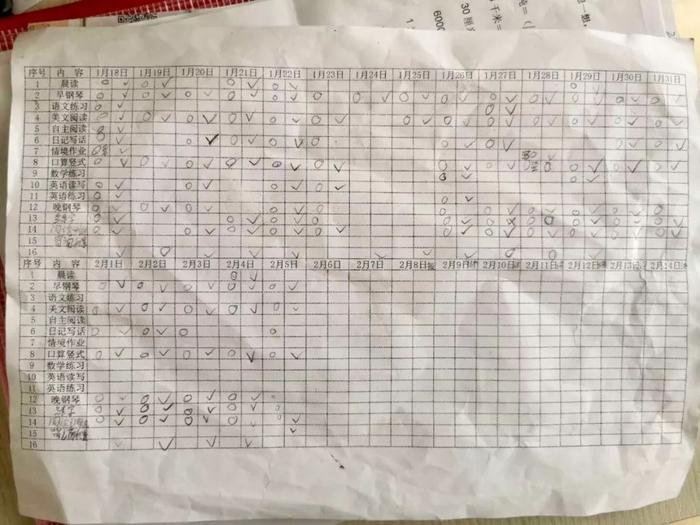 30厘
6000
千米=
序号 内 容 1月18日 1月19日 1月20日 1月21日 1月22日 1月23日 1月24日 1月25日 1月26日 1月27日 1月28日 1月29日 1月30日 1月31日
1 晨读
2 早钢琴
3 语文练习
4 美文阅读
5 自主阅读
6 日记写话
7 情境作业
8 口算竖式
9 数学练习
10 英语读写
11 英语练习
12 晚钢琴
13
14
15
16
序号 内 容 2月1日 2月2日 2月3日 2月4日 2月5日 2月6日 2月7日 2月8日 2月9日 2月10日 2月11日 2月12日 2月13日 2月14日
1 晨读
2 早钢琴
3 语文练习
4 美文阅读
5 自主阅读
6 日记写话
7 情境作业
8 口算竖式
9 数学练习
10 英语读写
11 英语练习
12 晚钢琴
13
14
15
16